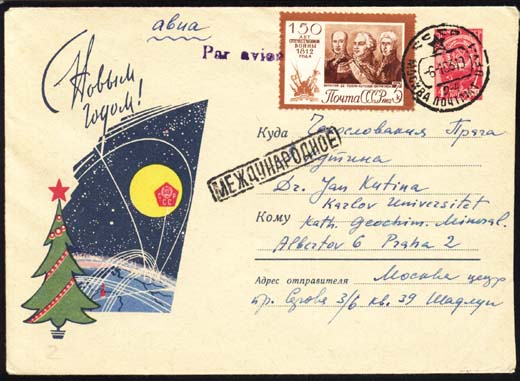 авиа
Par avion
150
ЛЕТ
ОТЕЧЕСТВЕННОЙ
ВОЙНЫ
1812
ГОДА
Почта СССР 1962
МОСКВА
С Новым
годом!
СССР
МЕЖДУНАРОДНОЕ
Куда Чехословакия Прага
Кутина
Dr. Jan Kutina
Karlov Universitet
Кому Kath. Geochim. Mineral.
Albertov 6 Praha 2
Адрес отправителя Москва центр
пр. Серова 3/6 кв. 39